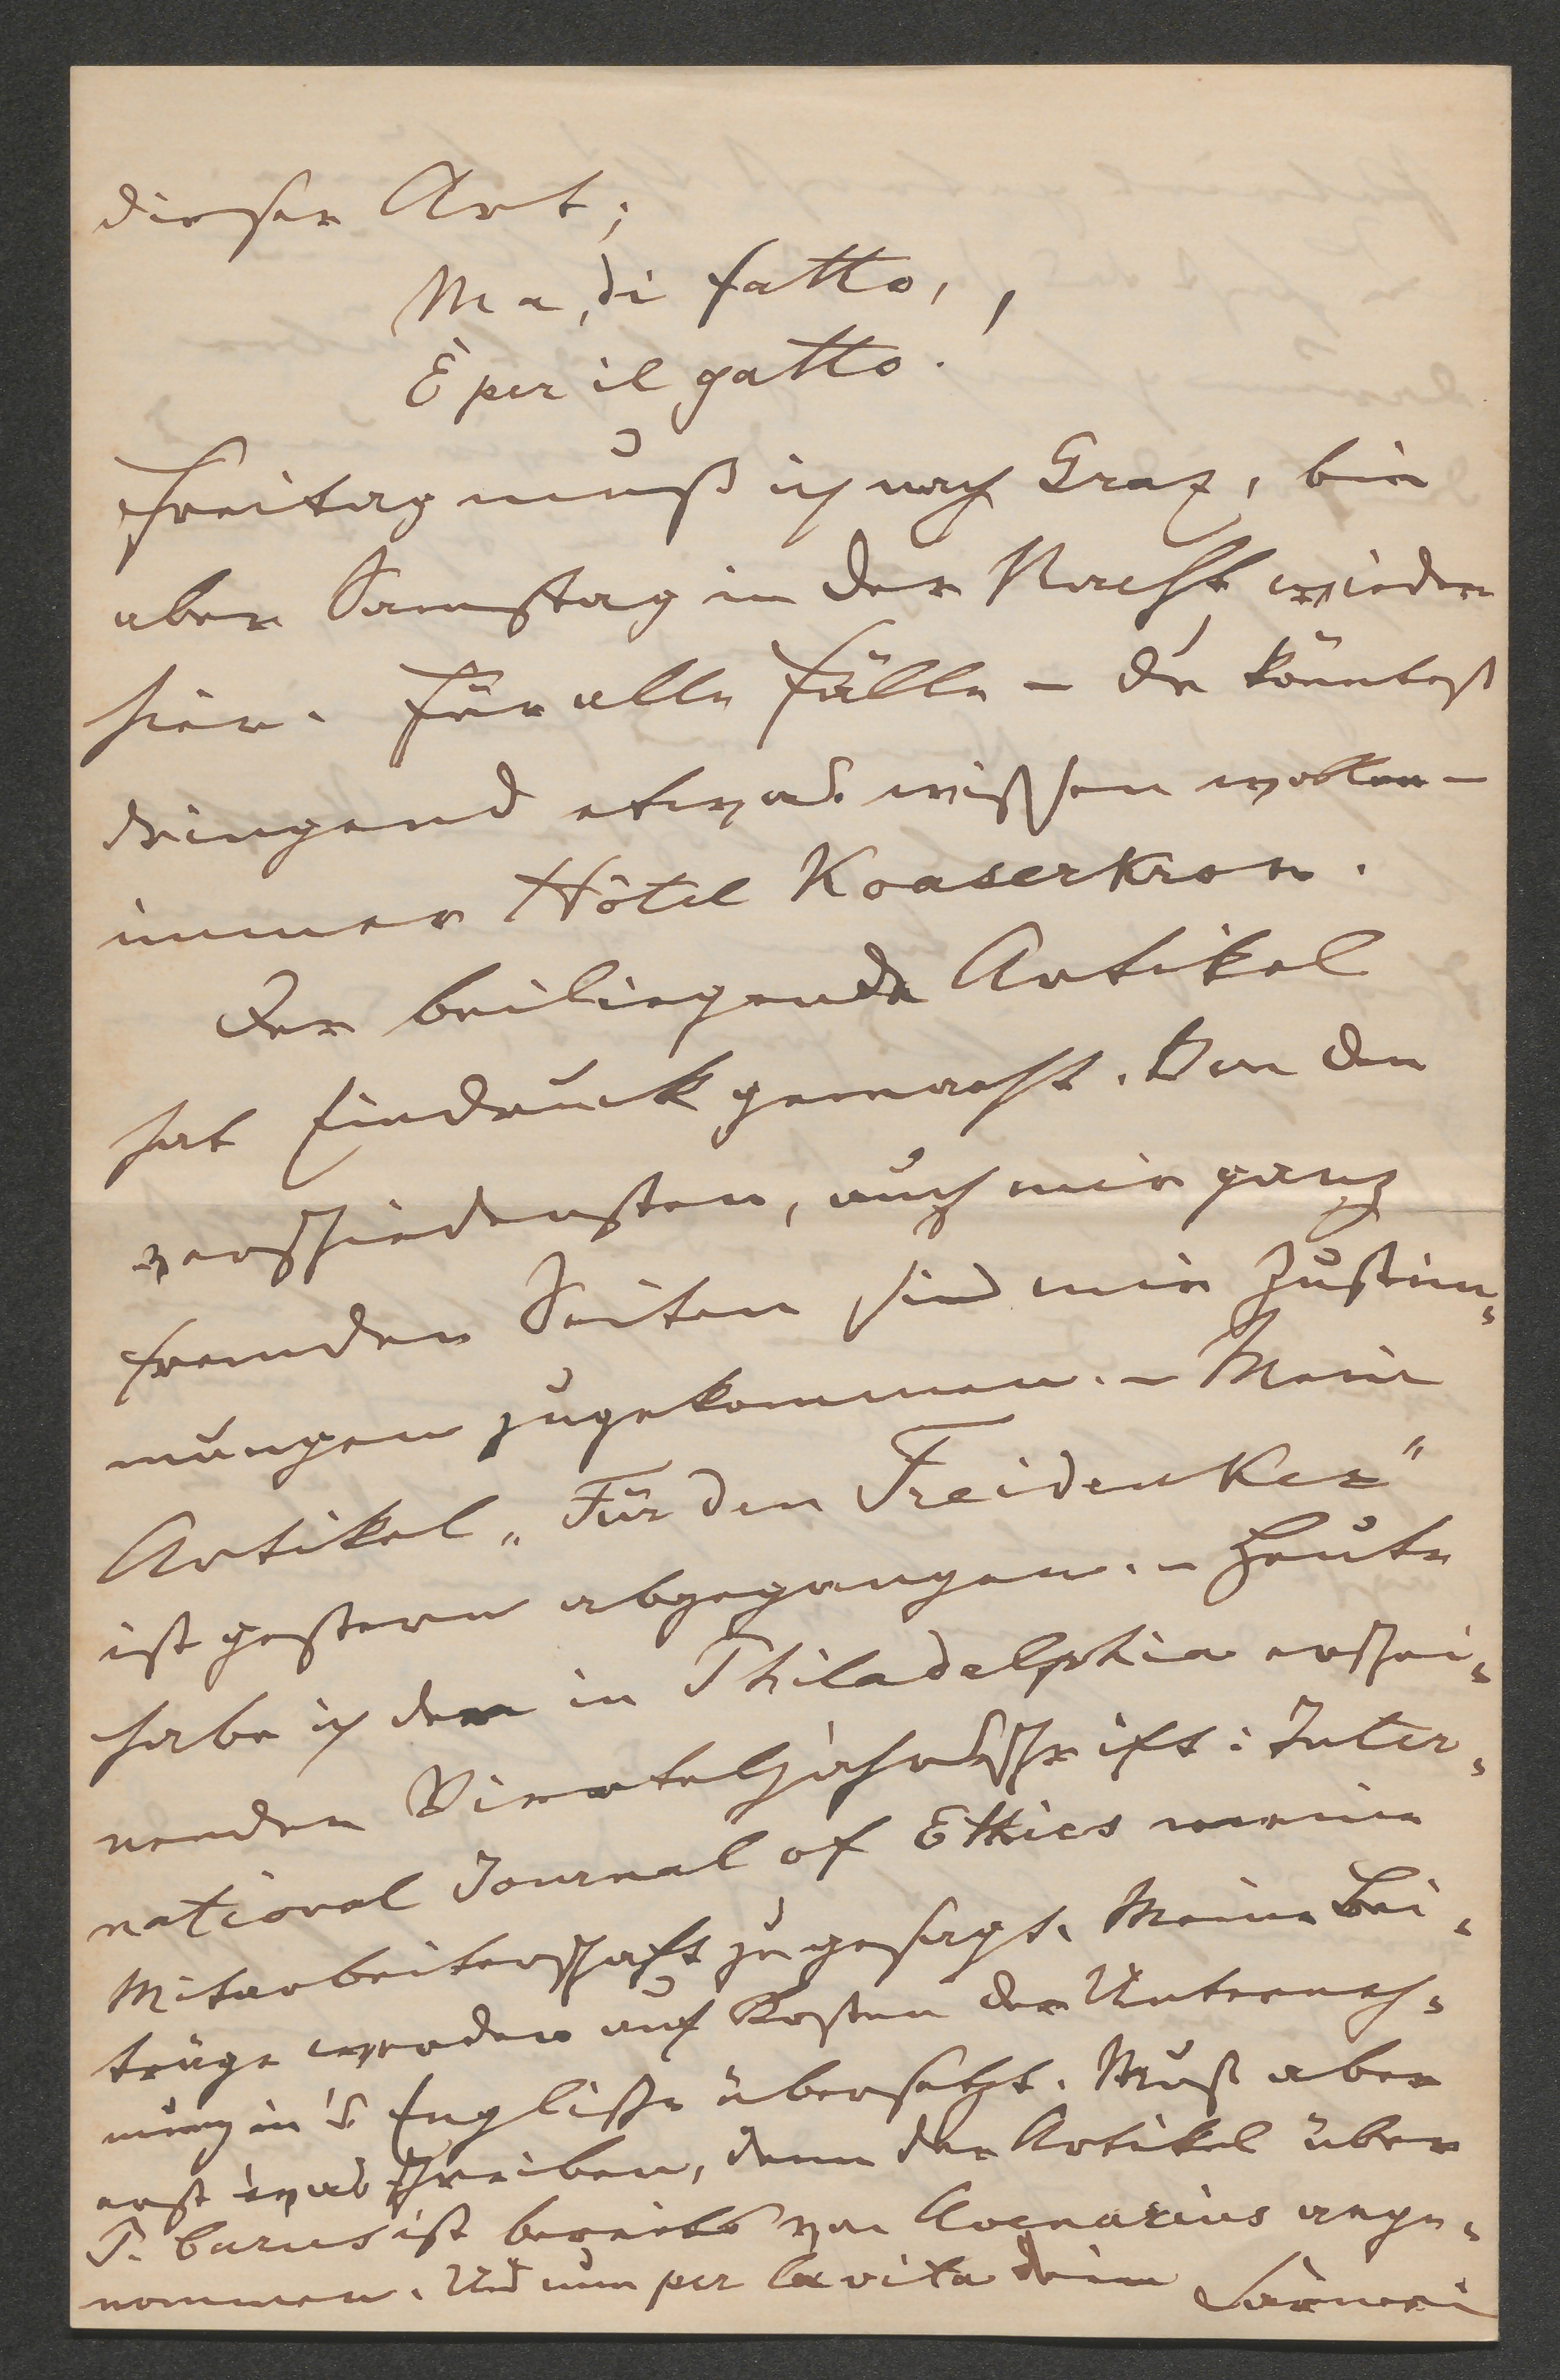 dieser Art;
Ma, di fatto,
È per il gatto.
Freitag muß ich nach Graz, bin
aber Samstag in der Nacht wieder
hier. Für alle Fälle – Du könntest
dringend etwas wissen wollen –
immer Hôtel Koaserkron.
Der beiliegende Artikel
hat Eindruck gemacht. Von den
verschiedensten, auch mir ganz
fremden Seiten sind mir Zustim-
mungen zugekommen. – Mein
Artikel „Für den Freidenker"
ist gestern abgegangen. – Heute
habe ich der in Philadelphia erschei-
nenden Vierteljahrsschrift: Inter-
national Journal of Ethics meine
Mitarbeiterschaft zugesagt. Meine Bei-
träge werden auf Kosten der Unterneh-
mung in's Englische übersetzt. Muß aber
erst was schreiben, denn der Artikel über
P. Carus ist bereits von Avenarius ange-
nommen. Und nun per la vita Dein Carneri